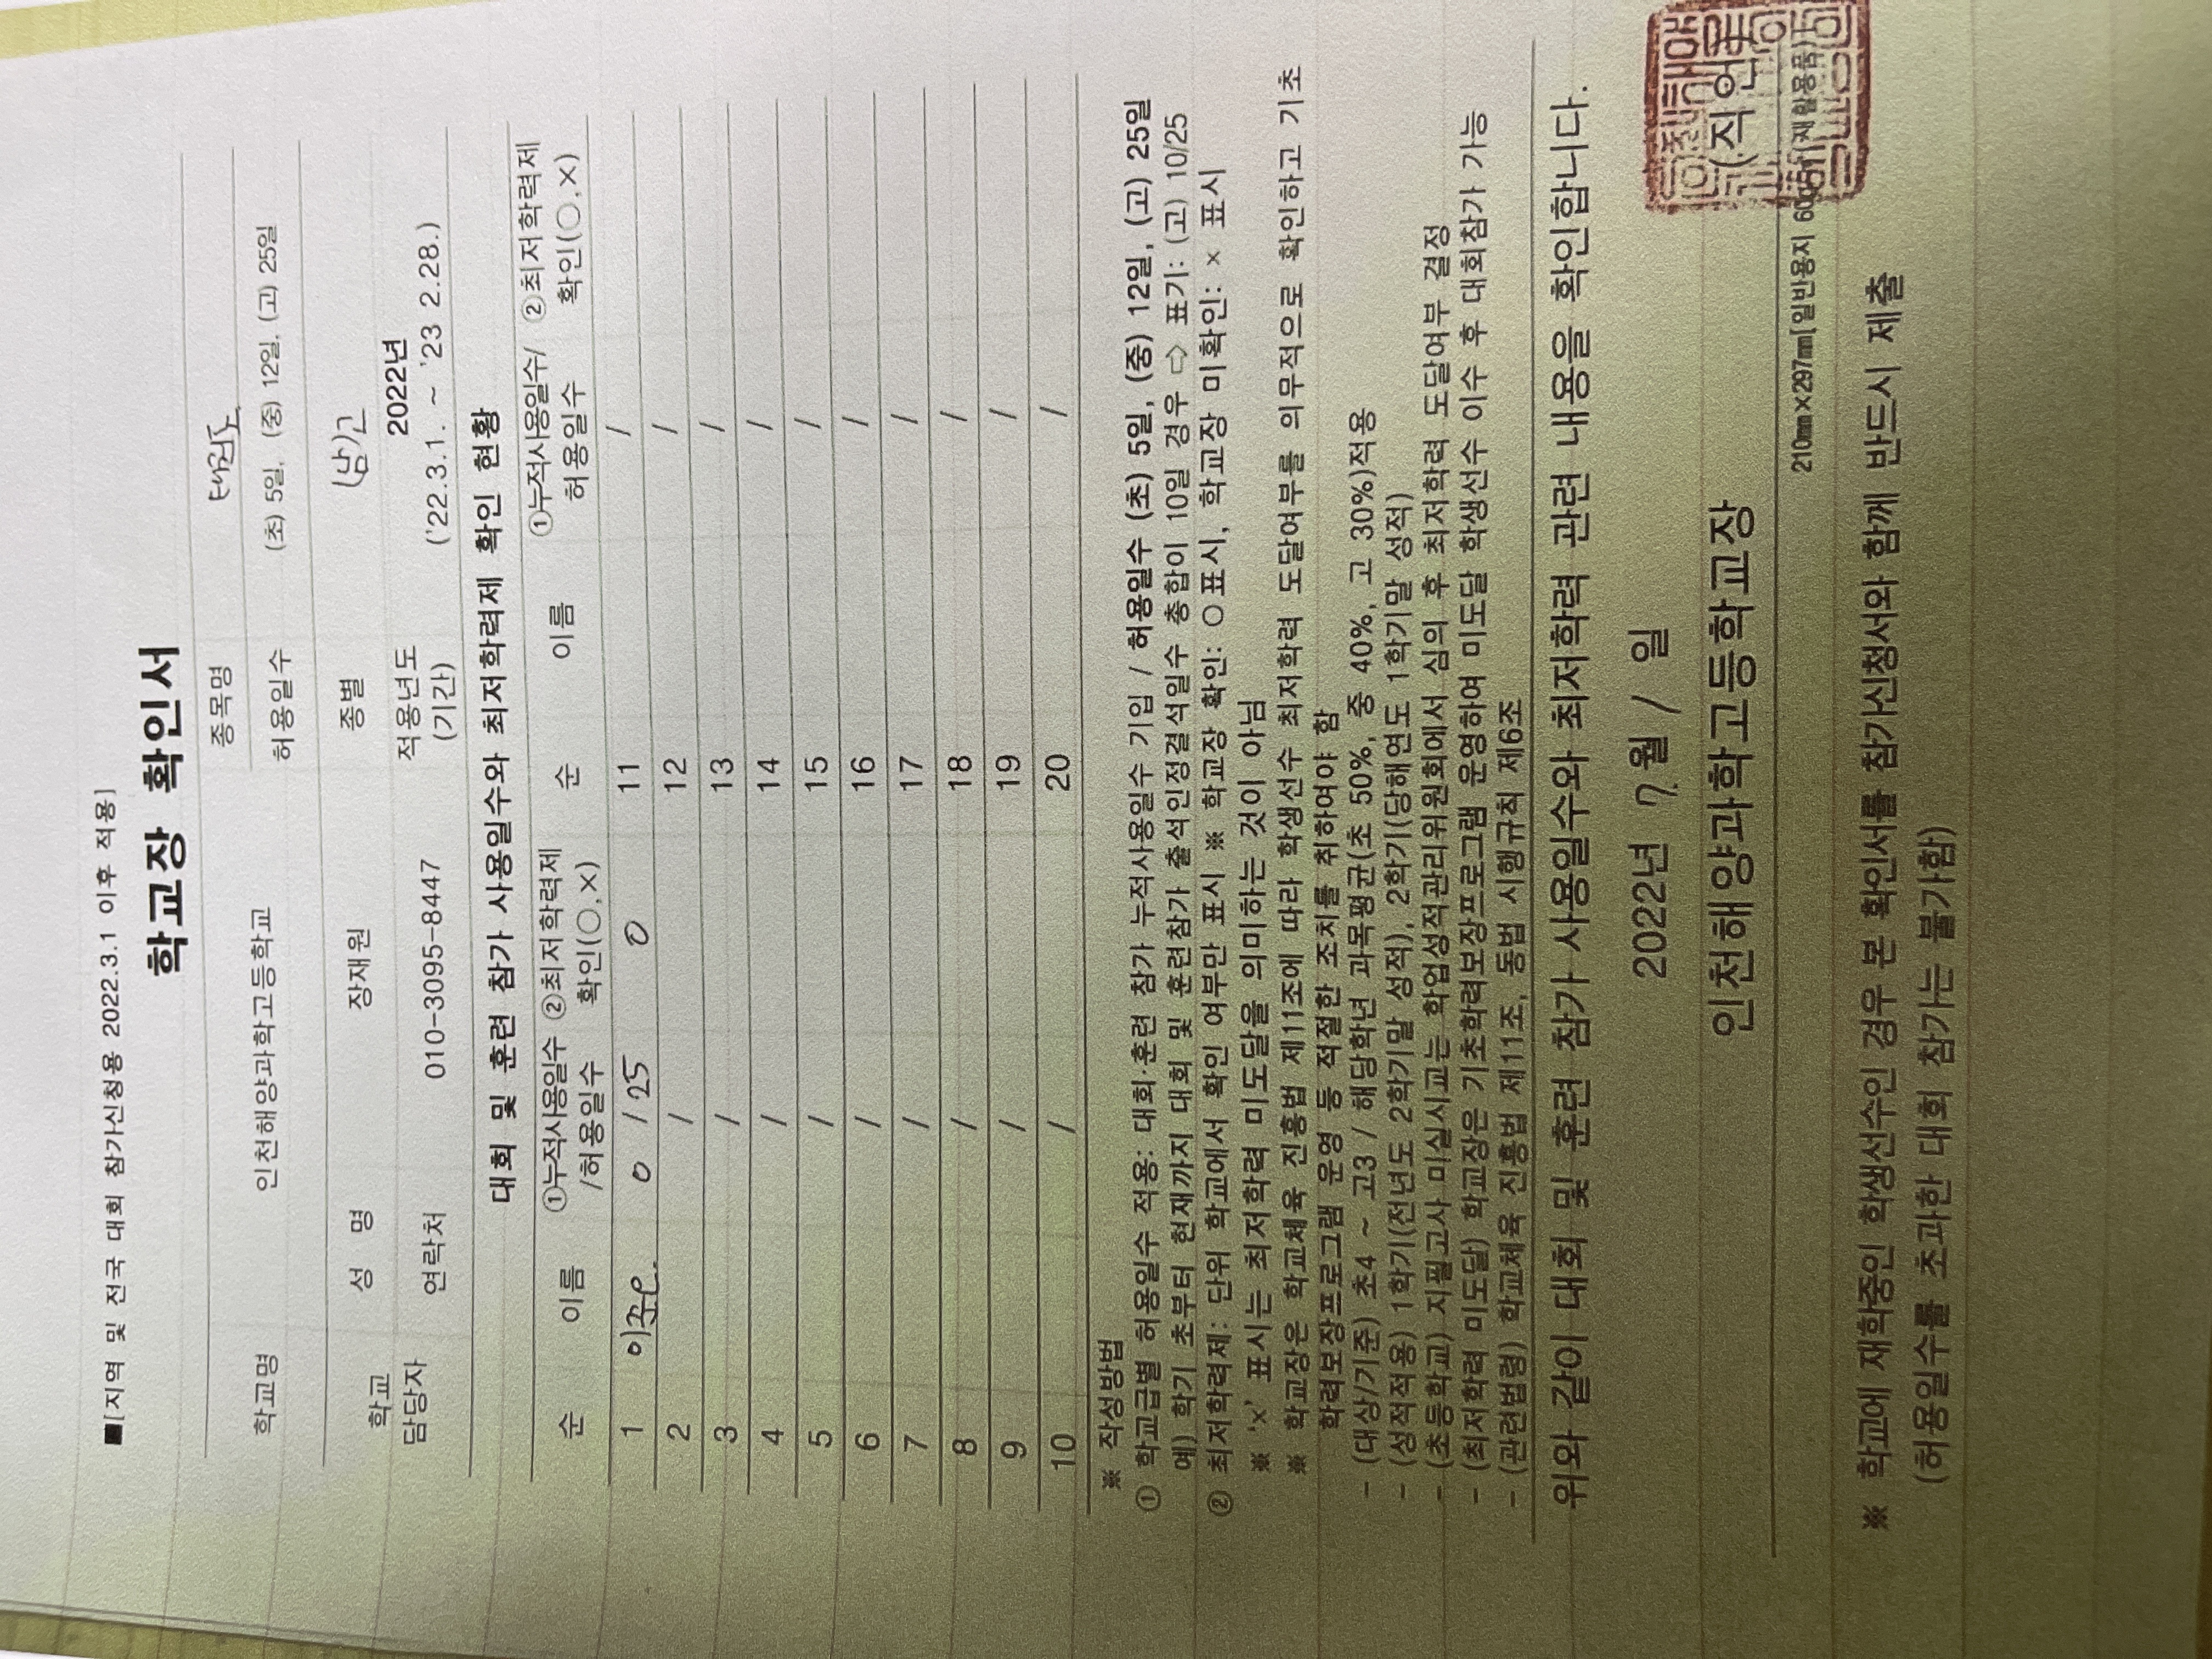 ■[지역 및 전국 대회 참가신청용 2022.3.1 이후 적용]
학교장 확인서
학교명 인천해양과학고등학교 종목명 태권도
허용일수 (초) 5일, (중) 12일, (고) 25일
학교 담당자 성 명 장재원 종별 (남)고
연락처 010-3095-8447 적용년도 (기간) 2022년 ('22.3.1. ~ '23 2.28.)
대회 및 훈련 참가 사용일수와 최저학력제 확인 현황
순 이름 ①누적사용일수 /허용일수 ②최저학력제 확인(○,×) 순 이름 ①누적사용일수/ 허용일수 ②최저학력제 확인(○,×)
1 0 / 25 0 11 /
2 / 12 /
3 / 13 /
4 / 14 /
5 / 15 /
6 / 16 /
7 / 17 /
8 / 18 /
9 / 19 /
10 / 20 /
※ 작성방법
① 학교급별 허용일수 적용: 대회·훈련 참가 누적사용일수 기입 / 허용일수 (초) 5일, (중) 12일, (고) 25일
예) 학기 초부터 현재까지 대회 및 훈련참가 출석인정결석일수 총합이 10일 경우 ⇨ 표기: (고) 10/25
② 최저학력제: 단위 학교에서 확인 여부만 표시 ※ 학교장 확인: ○ 표시, 학교장 미확인: × 표시
※ '×' 표시는 최저학력 미도달을 의미하는 것이 아님
※ 학교장은 학교체육 진흥법 제11조에 따라 학생선수 최저학력 도달여부를 의무적으로 확인하고 기초
학력보장프로그램 운영 등 적절한 조치를 취하여야 함
- (대상/기준) 초4 ~ 고3 / 해당학년 과목평균(초 50%, 중 40%, 고 30%)적용
- (성적적용) 1학기(전년도 2학기말 성적), 2학기(당해연도 1학기말 성적)
- (초등학교) 지필고사 미실시교는 학업성적관리위원회에서 심의 후 최저학력 도달여부 결정
- (최저학력 미도달) 학교장은 기초학력보장프로그램 운영하여 미도달 학생선수 이수 후 대회참가 가능
- (관련법령) 학교체육 진흥법 제11조, 동법 시행규칙 제6조
위와 같이 대회 및 훈련 참가 사용일수와 최저학력 관련 내용을 확인합니다.
2022년 7월 / 일
인천해양과학고등학교장 (직인)
210㎜×297㎜[일반용지 60g/㎡(재활용품)]
※ 학교에 재학중인 학생선수인 경우 본 확인서를 참가신청서와 함께 반드시 제출
(허용일수를 초과한 대회 참가는 불가함)